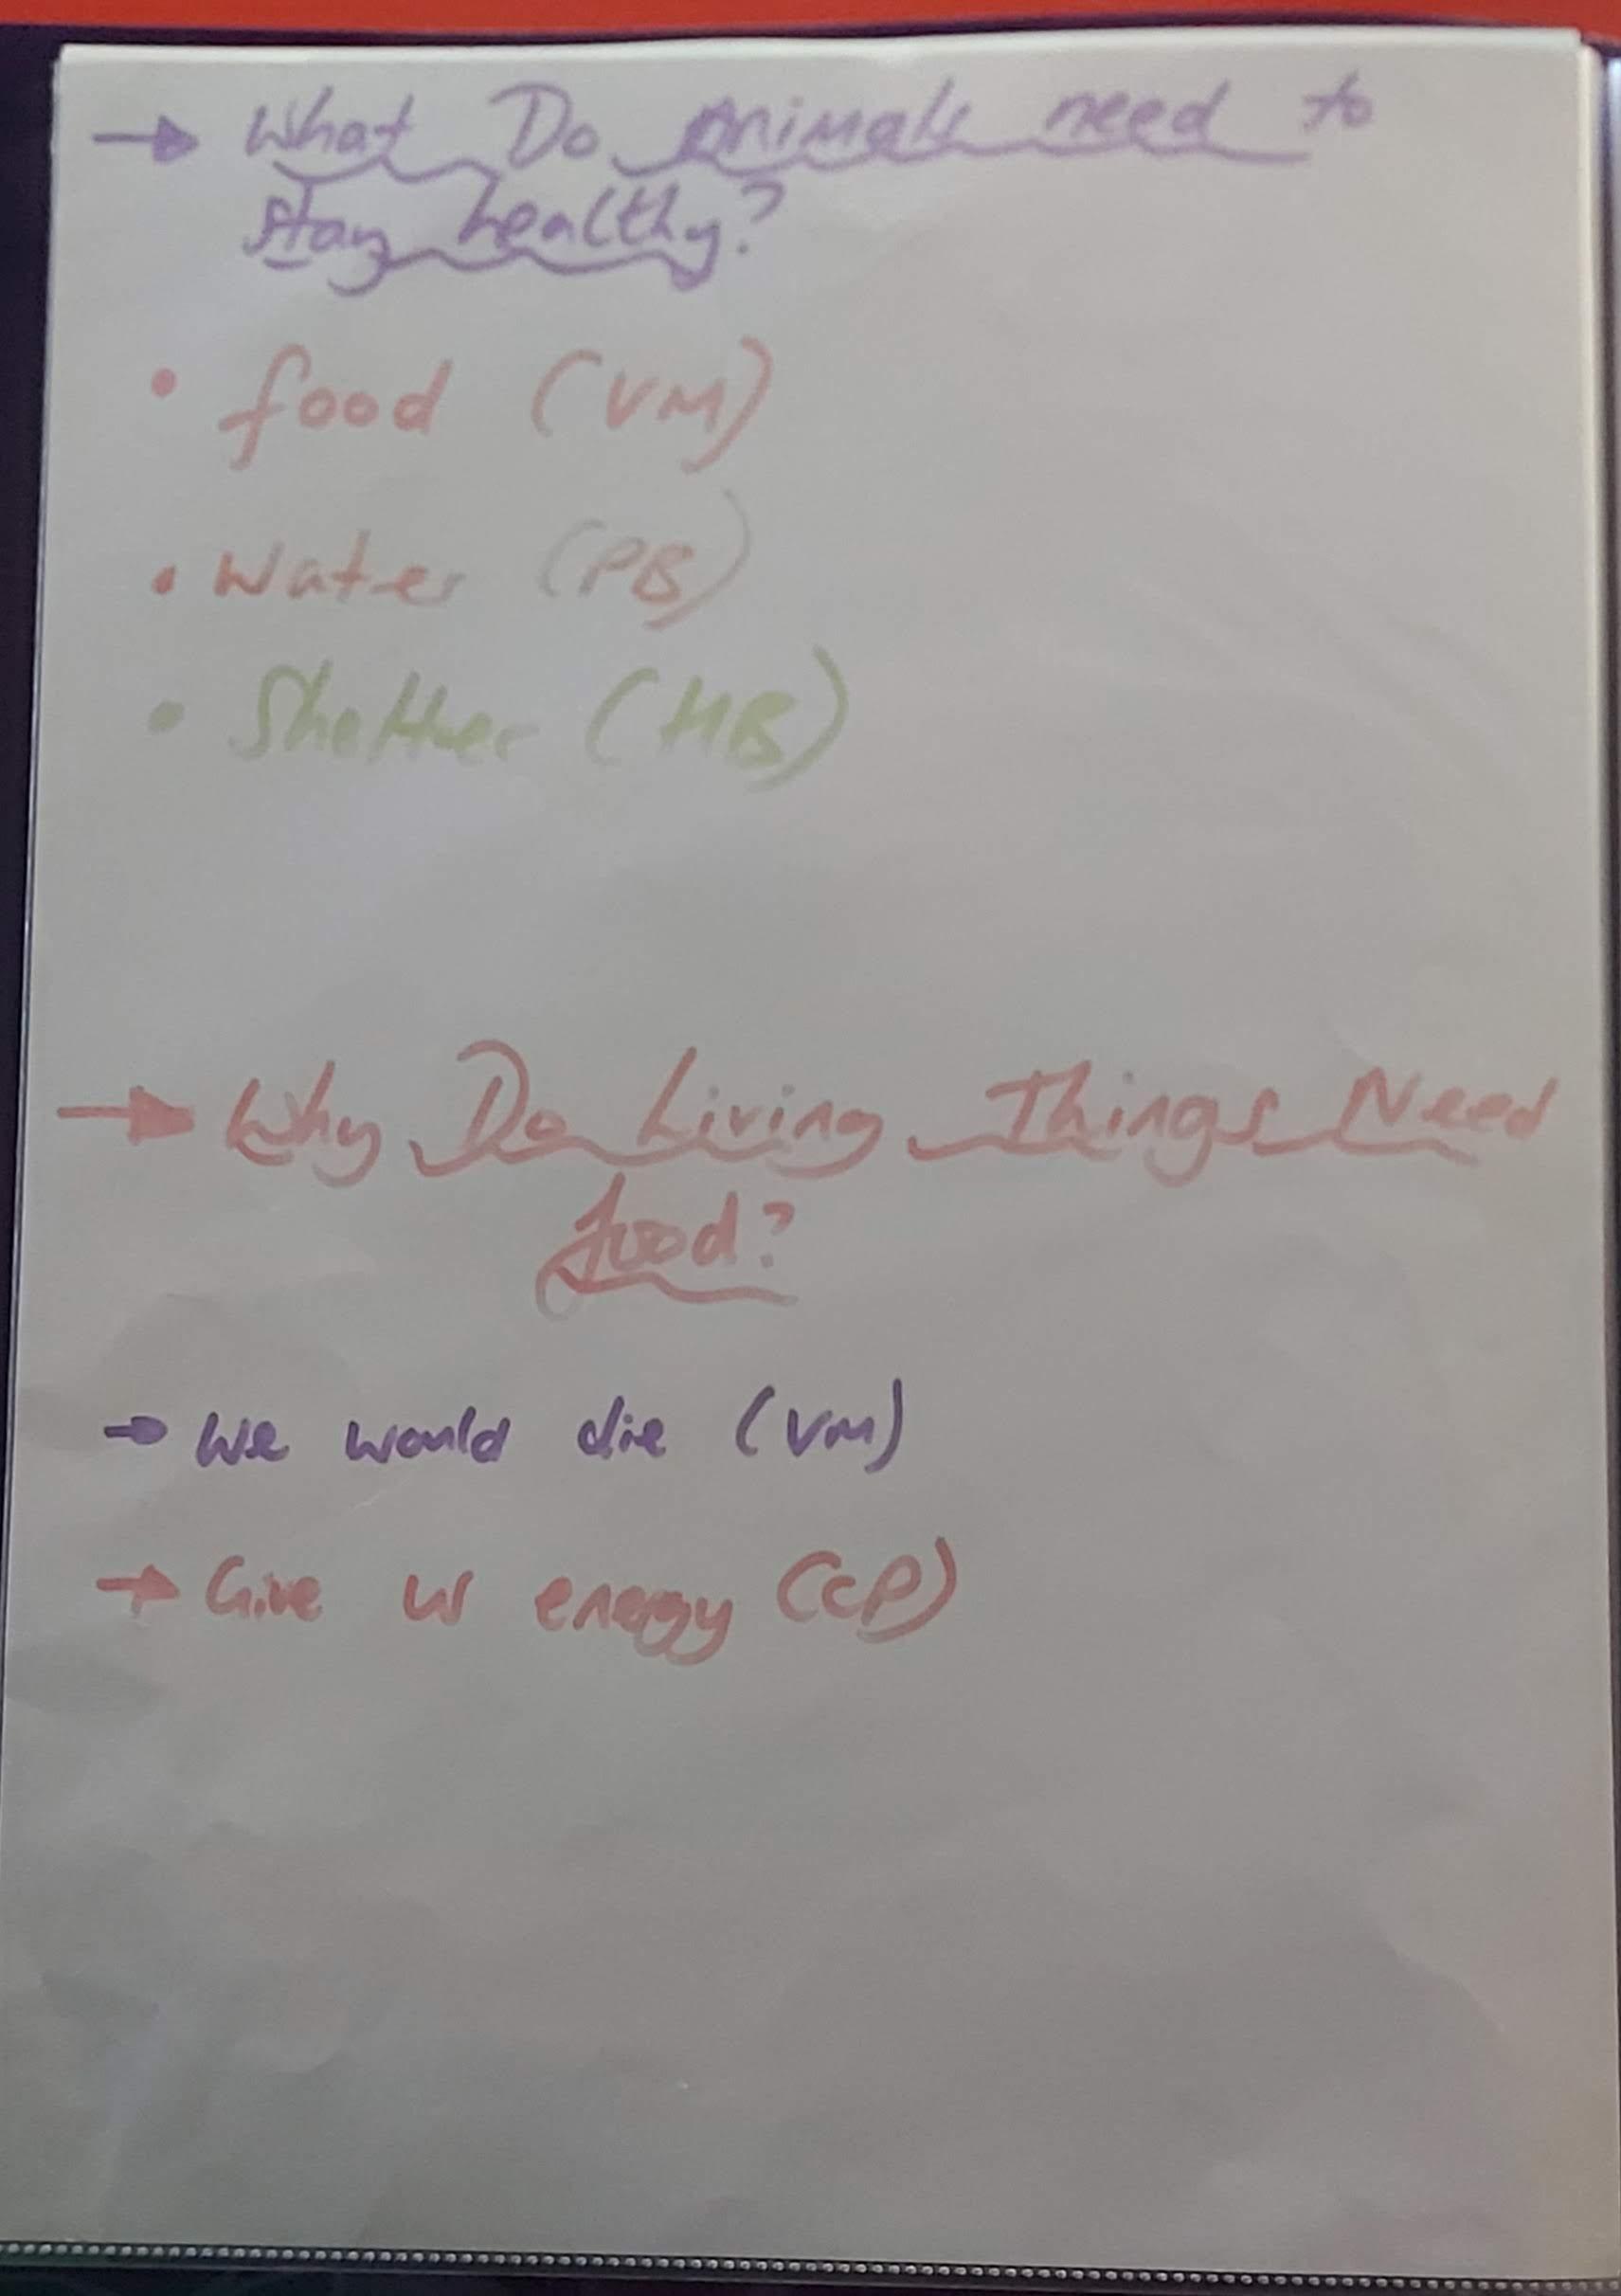 → What Do Animals need to
stay healthy?
• food (VM)
• Water (PB)
• Shelter (HB)
→ Why Do Living Things Need
food?
→ We would die (VM)
→ Give us energy (CP)